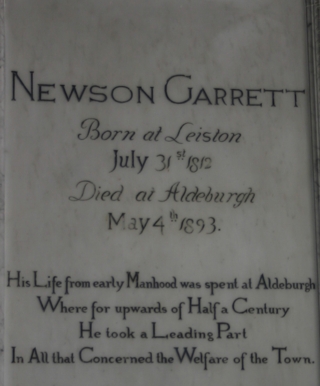 NEWSON GARRETT
Born at Leiston
July 31st 1812
Died at Aldeburgh
May 4th 1893.
His Life from early Manhood was spent at Aldeburgh
Where for upwards of Half a Century
He took a Leading Part
In All that Concerned the Welfare of the Town.